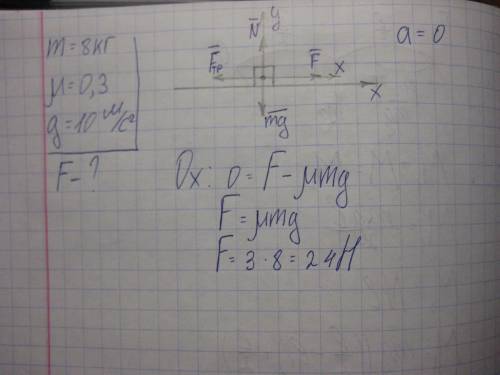 m = 8кг
μ = 0,3
g = 10 м/с²
F - ?
N̅ y
F̅тр F̅ x
x
m̅g̅
a = 0
Ox: 0 = F - μmg
F = μmg
F = 3 · 8 = 24Н